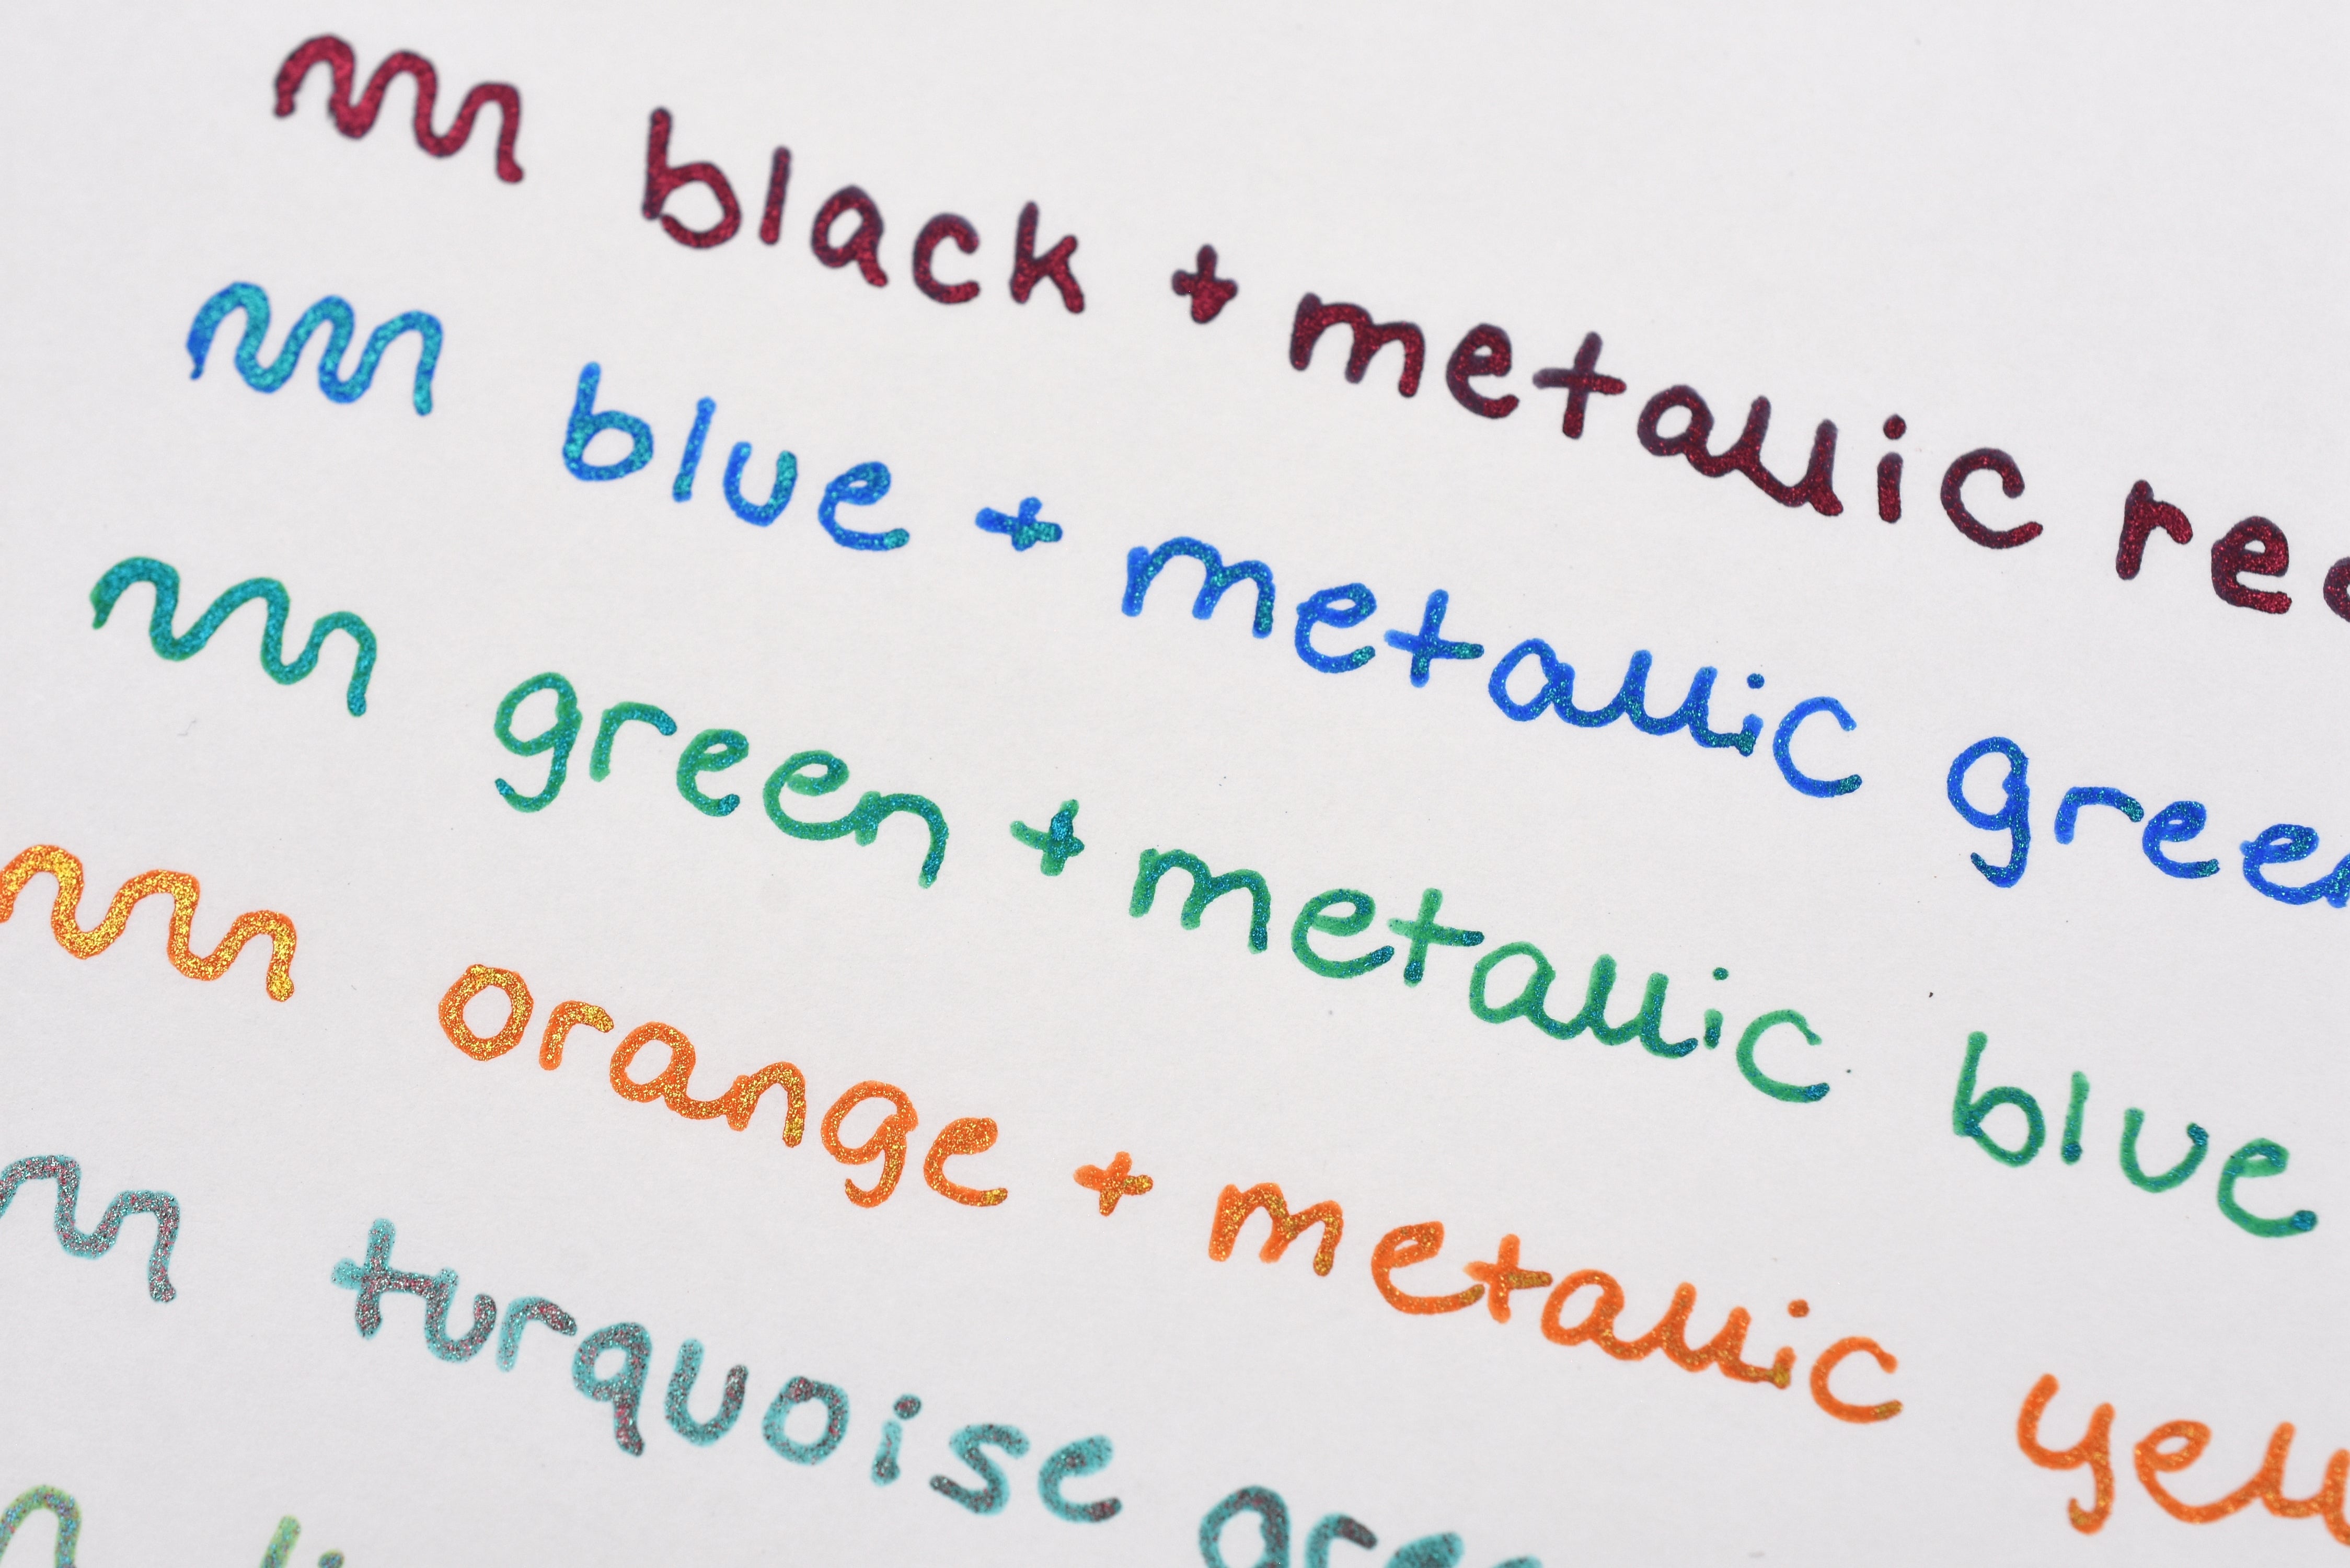 black + metallic red
blue + metallic green
green + metallic blue
orange + metallic yell
turquoise gre
li